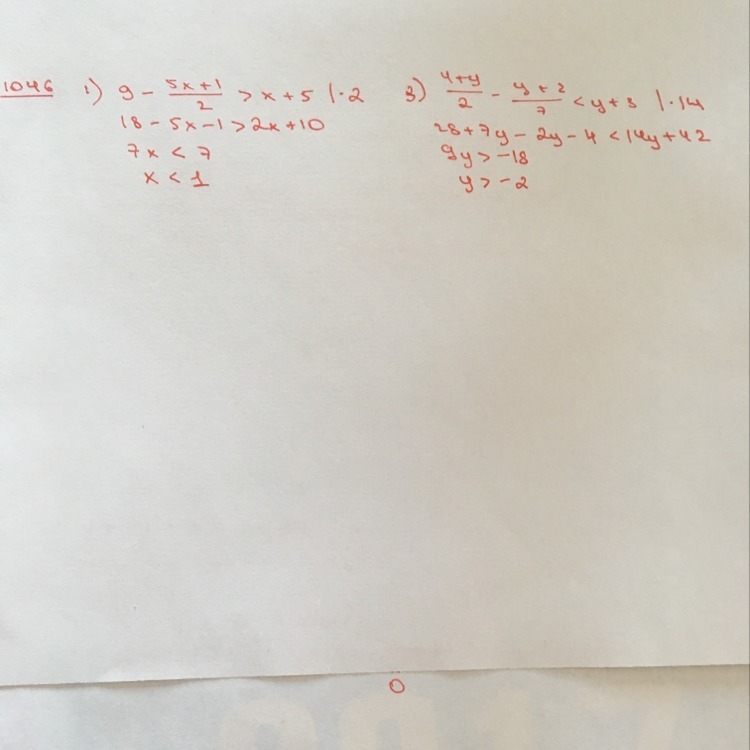 1046 1) 9 - (5x+1)/2 > x + 5 |·2
18 - 5x - 1 > 2x + 10
7x < 7
x < 1
3) (4+y)/2 - (y+2)/7 < y + 3 |·14
28 + 7y - 2y - 4 < 14y + 42
9y > -18
y > -2